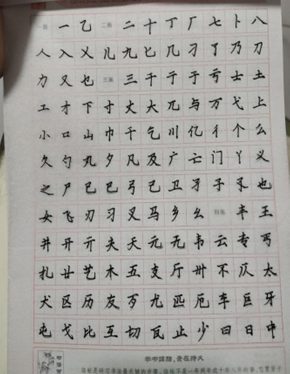 一画 一 乙 二画 二 十 丁 厂 七 卜 八
人 入 乂 儿 九 匕 几 刁 了 乃 刀
力 又 也 三画 三 干 于 亏 士 土
工 才 下 寸 丈 大 兀 与 万 弋 上
小 口 山 巾 千 乞 川 亿 彳 个 么
久 勺 丸 夕 凡 及 广 亡 门 丫 义
之 尸 已 巳 弓 己 卫 孑 子 孓 也
女 飞 刃 习 叉 马 乡 幺 四画 丰 王
井 开 亓 夫 天 元 无 韦 云 专 丐
扎 廿 艺 木 五 支 厅 卅 不 仄 太
犬 区 历 友 歹 尤 匹 厄 车 巨 牙
屯 戈 比 互 切 瓦 止 少 曰 日 中